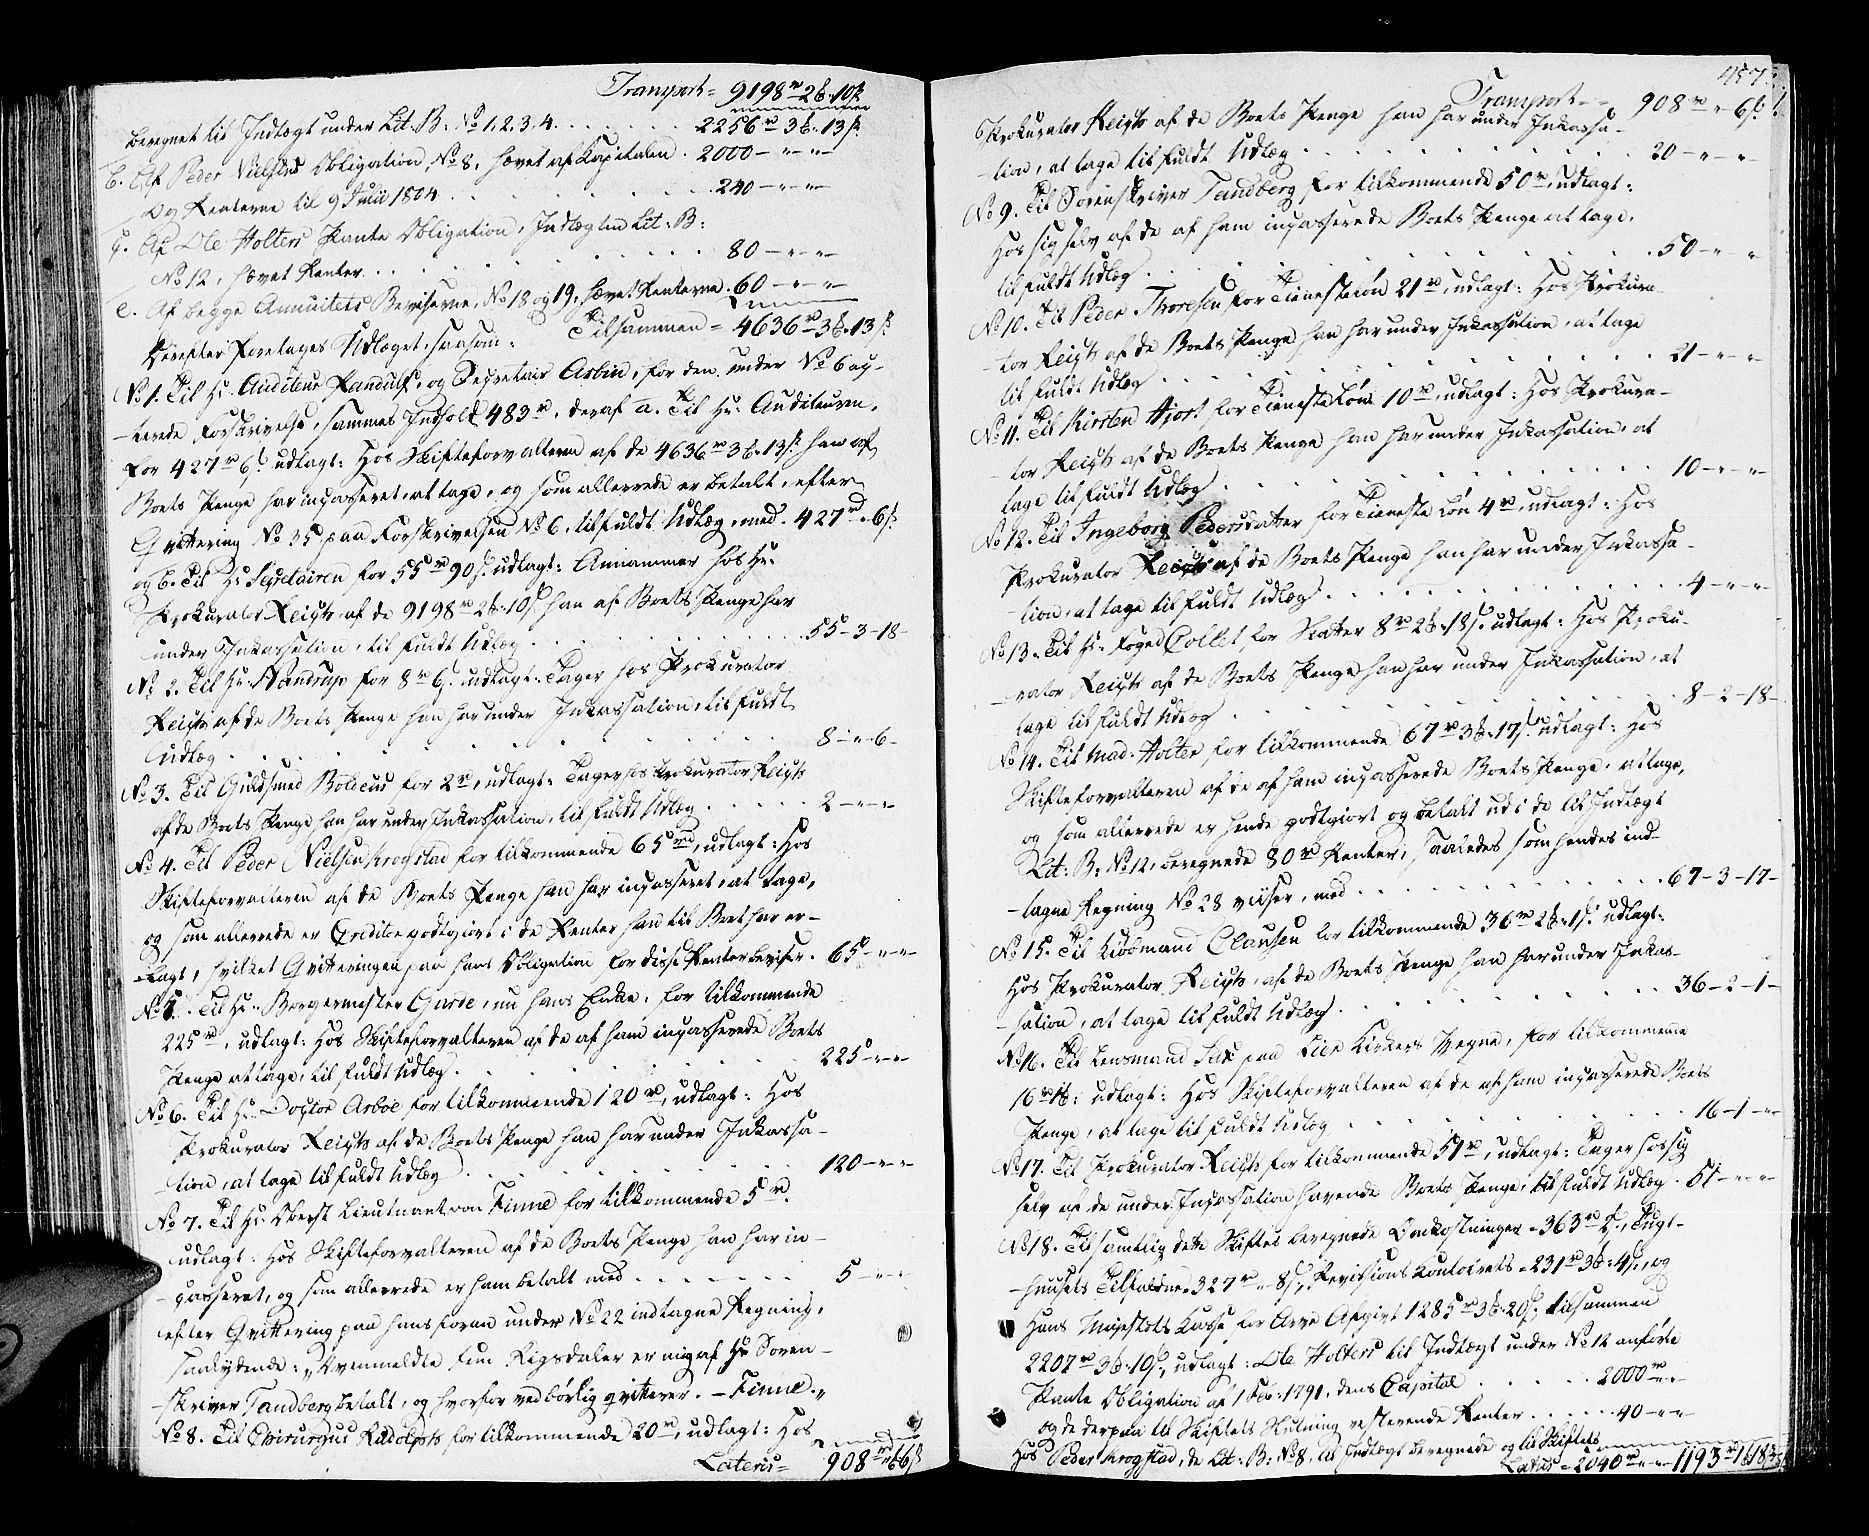 Transport = 9198 rd 2 ß. 10 s.
beregnet til Indtægt under Lit: B: No 1. 2. 3. 4. . . . . . 2256 rd 3 ß. 13 s.
b. Af Peder Nielsens Obligation, No 8, hævet af Kapitalen . 2000 – " – "
Og Renterne til 9 Julii 1804 . . . . . . . . 240 – " – "
Af Ole Holters Pante Obligation, Indtægten Lit: B:
No 12, hævet Renter . . . . . . . . 80 – " – "
e. Af begge Annuitets Beviserne, No 18 og 19, hævet Renterne . 60 – " – "
Tilsammen = 4636 rd 3 ß. 13 s.
Derefter foretages Udlæget, saasom:
No 1. Til Hr. Auditeur Randulf, og Secretair Arbin, for den under No 6 ag-
-terede Forskrivelse, sammes Indhold 483 rd, deraf a. Til Hr: Auditeuren,
for 427 rd 6 s. udlagt: Hos Skifteforvalteren af de 4636 rd 3 ß. 13 s. han af
Boets Penge har incasseret, at tage, og som allerede er betalt, efter
Qvittering No 35 paa Forskrivelsen No 6, til fuldt Udlæg, med . 427 rd " 6 s.
og b. Til Hr Secretairen for 55 rd 90 s. udlagt: Annammer hos Hr:
Prokurator Reigh af de 9198 rd 2 ß. 10 s. han af Boets Penge har
under Inkassation, til fuldt Udlæg . . . . . . 55 – 3 – 18 –
No 2. Til Hr: Nandrup for 8 rd 6 s. udlagt: Tager hos Prokurator
Reigh af de Boets Penge han har under Inkassation, til fuldt
Udlæg . . . . . . . . 8 – " – 6 –
No 3. Til Guldsmed Boldeus for 2 rd, udlagt: Tager hos Prokurator Reigh
af de Boets Penge han har under Inkassation, til fuldt Udlæg . . . . . 2 – " – "
No 4. Til Peder Nielsen Krogstad for tilkommende 65 rd, udlagt: Hos
Skifteforvalteren af de Boets Penge han har incasseret, at tage,
og som allerede er Creditor godtgiort i de Renter han til Boet har er-
-lagt, hvilket Qvitteringen paa hans Obligation for disse Renter beviser . 65 – " – "
No 5. Til Hr: Borgermester Garde, nu hans Enke, for tilkommende
225 rd, udlagt: Hos Skifteforvalteren af de af ham incasserede Boets
Penge at tage, til fuldt Udlæg . . . . . . 225 – " – "
No 6. Til Hr: Doctor Arboe for tilkommende 120 rd, udlagt: Hos
Prokurator Reigh af de Boets Penge han har under Inkassa-
-tion, at tage til fuldt Udlæg . . . . . . 120 – " – "
No 7. Til Hr: Oberst Lieutnant von Finne for tilkommende 5 rd.
udlagt: Hos Skifteforvalteren af de Boets Penge han har in-
-casseret, og som allerede er ham betalt med . . . . . . 5 – " – "
efter Qvittering paa hans foran under No 22 indtagne Regning,
saalydende: "Ovenmeldte fem Rigsdaler er mig af Hr Soren-
-skriver Tandberg betalt, og hvorfor ved børlig qvitterer. – Finne."
No 8. Til Chirurgus Rudolph for tilkommende 20 rd, udlagt: Hos
Lateris = 908 rd " 6 s.
457.
Transport – – 908 rd " 6 s.
Prokurator Reigh af de Boets Penge han har under Inkassa-
-tion, at tage til fuldt Udlæg . . . . . . 20 – " – "
No 9. Til Sorenskriver Tandberg for tilkommende 50 rd, udlagt:
Hos sig selv af de af ham incasserede Boets Penge at tage,
til fuldt Udlæg . . . . . . 50 – " – "
No 10. Til Peder Thoresen for Tieneste Løn 21 rd, udlagt: Hos Prokura-
-tor Reigh af de Boets Penge han har under Inkassation, at tage
til fuldt Udlæg . . . . . . 21 – " – "
No 11. Til Kirsten Hjort for Tieneste Løn 10 rd, udlagt: Hos Prokura-
-tor Reigh af de Boets Penge han har under Inkassation, at
tage til fuldt Udlæg . . . . . . 10 – " – "
No 12. Til Ingeborg Pedersdatter for Tieneste Løn 4 rd, udlagt: Hos
Prokurator Reigh af de Boets Penge han har under Inkassa-
-tion, at tage til fuldt Udlæg . . . . . . 4 – " – "
No 13. Til Hr: Foged Collet, for Skatter 8 rd 2 ß. 18 s. udlagt: Hos Proku-
-rator Reigh af de Boets Penge han har under Inkassation, at
tage til fuldt Udlæg . . . . . . 8 – 2 – 18 –
No 14. Til Mad. Holter for tilkommende 67 rd 3 ß. 17 s. udlagt: Hos
Skifteforvalteren af de af ham incasserede Boets Penge, at tage,
og som allerede er hende godtgiort og betalt ud i de til Indtægt
Lit: B: No 12, beregnede 80 rd Renter, saaledes som hendes ind-
-tagne Regning No 28 viiser, med . . . . . . 67 – 3 – 17 –
No 15. Til Kiøbmand Clausen for tilkommende 36 rd 2 ß. 1 s. udlagt:
Hos Prokurator Reigh, af de Boets Penge han har under Inkas-
-sation, at tage til fuldt Udlæg . . . . . . 36 – 2 – 1 –
No 16. Til Lensmand paa Lier Kirkers Vegne, for tilkommende
16 rd 1 ß: udlagt: Hos Skifteforvalteren af de af ham incasserede Boets
Penge, at tage til fuldt Udlæg . . . . . . 16 – 1 – "
No 17. Til Prokurator Reigh for tilkommende 51 rd, udlagt: Tager hos sig
selv af de under Inkassation havende Boets Penge, til fuldt Udlæg . 51 – " – "
No 18. Til samtlig dette Skiftet beregnede Omkostninger = 363 rd 2 ß., Tugt-
-huusets Tilfaldne 327 rd " 8 s., Revisions Contoirets = 231 rd 3 ß: 4 s., og
Hans Majestæts Kasse for Arve Afgivt 1285 rd 3 ß. 20 s. tilsammen
2207 rd 3 ß. 10 s., udlagt: Ole Holters til Indtægt under No 12 anførte
Pante Obligation af 1 Feb: 1791, dens Capital . . . . . 2000 rd " "
og de derpaa til Skiftets Slutning resterende Renter . . . . . 40 – " – "
Hos Peder Krogstad, de Lit: B: No 8, til Indtægt beregnede og til Skiftets
Latus = 2040 rd " – " 1193 rd 1 ß 18 s.